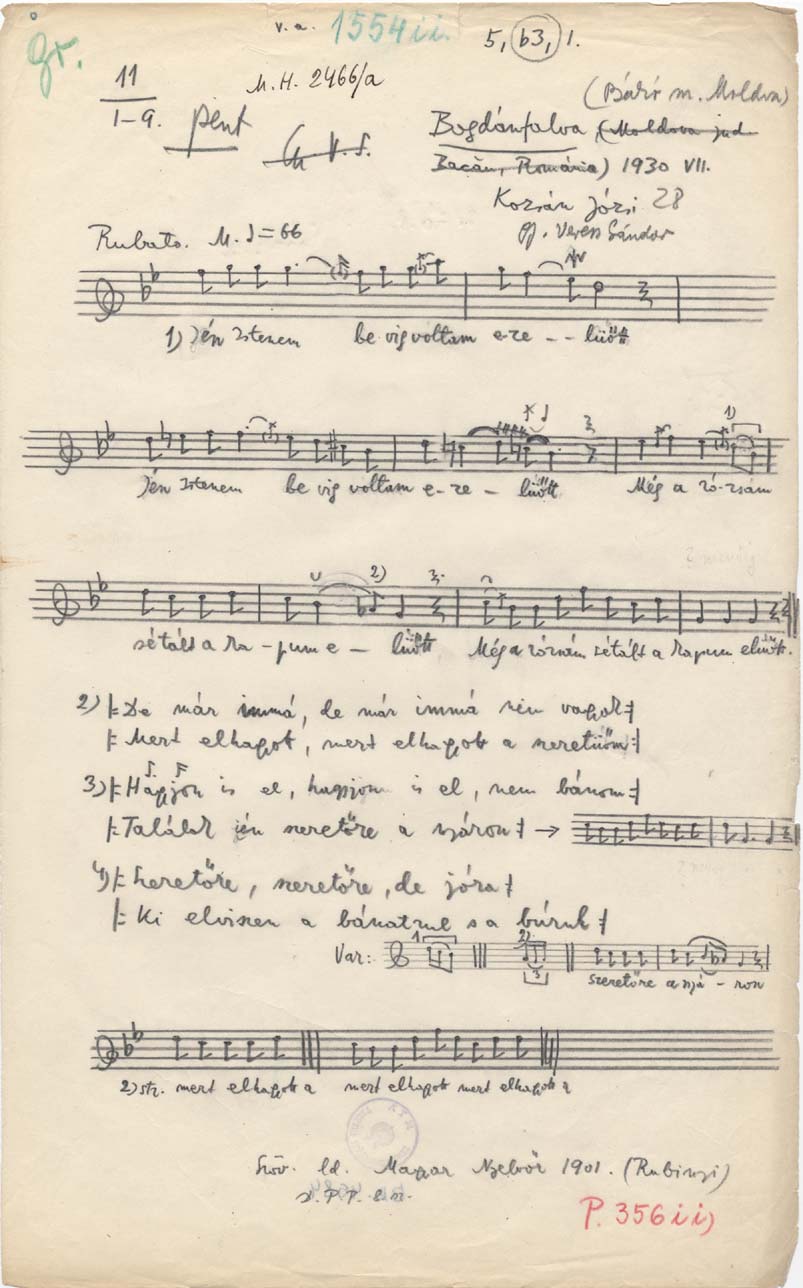 v. a. 1554 ii.
5, b3, 1.
gr.
11
1-9. pent
M. H. 2466/a
(Bákó m. Moldva)
Bogdánfalva, (Moldova jud.
Bacău, România) 1930 VII.
Kozsán Józsi 28
gj. Veress Sándor
Rubato. M. ♩=66
1) Jén Istenem be vig voltam e-re - - lüött
Jén Istenem be vig voltam e-re - lüött Még a ró-zsám
1)
2)
sétált a ka-pum e - lüött Még a rózsám sétált a kapum elüött.
2) |: De már immá, de már immá vagok :|
|: Mert elhagot, mert elhagott a szeretüöm :|
3) |: Hagyjon is el, hagyjon is el, nem bánom :|
|: Találok jén szeretőre a nyáron :| →
4) |: Szeretőre, szeretőre, de jóra :|
|: Ki elviszen a bánatnul s a búrul :|
Var: 1) 2) 3
szeretőre a nyá - ron
2) str. mert elhagott a mert elhagott mert elhagott a
Szöv. ld. Magyar Nyelvőr 1901. (Rubinyi)
P. 356 ii)